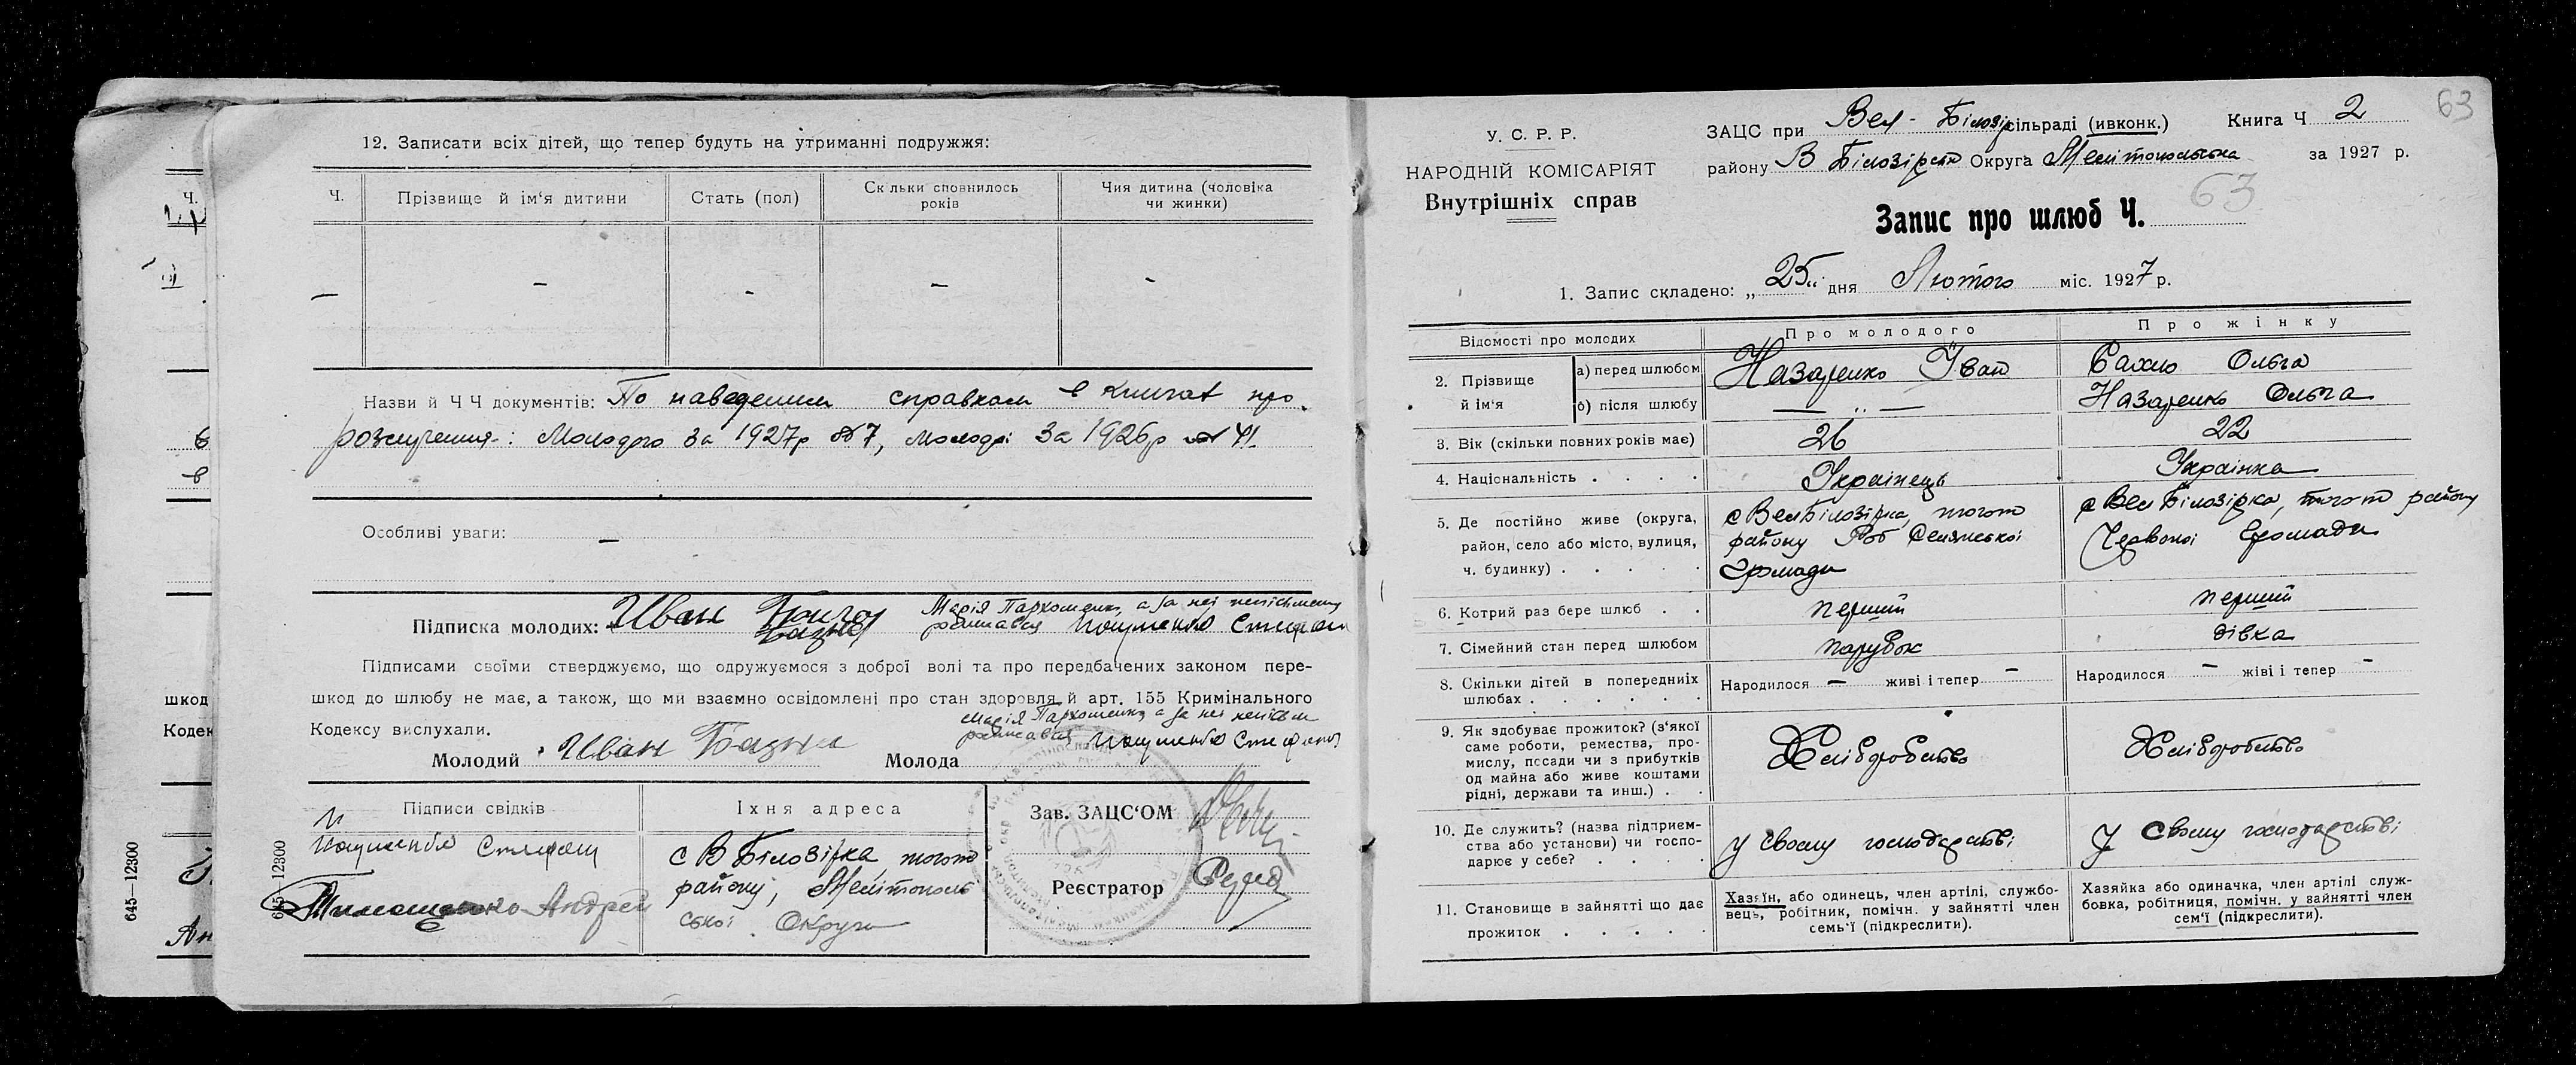 12. Записати всіх дітей, що тепер будуть на утриманні подружжя:
Ч.
Прізвище й ім'я дитини
Стать (пол)
Скільки сповнилось років
Чия дитина (чоловіка чи жинки)
— — - — -
Назви й Ч Ч документів: По наведеним справкам в книгах про
розлучения: Молодого за 1927р № 7, молодої за 1926р № 41
Особливі уваги: —
Підписка молодих: Иван
Марія Пархоменко, а за неї неписьменну
росписався Стефан
Підписами своїми стверджуємо, що одружуємося з доброї волі та про передбачених законом пере-
шкод до шлюбу не має, а також, що ми взаємно освідомлені про стан здоровля й арт. 155 Кримінального
Кодексу вислухали.
Марія Пархоменко а за неї неписьм
росписався Стефан
Молодий Иван
Молода
Підписи свідків
Їхня адреса
Зав. ЗАЦС'ОМ
Стефан
с В Білозірка, того ж
району, Мелітополь
ської Округи
Тимошенко Андрей
Реєстратор
645—12300
645—12300
шкод
Кодек
Ан
63
У. С. Р. Р.
НАРОДНІЙ КОМІСАРІЯТ
Внутрішніх справ
ЗАЦС при Вел - Білозір сільраді (ивконк.) Книга Ч 2
району В Білозірськ Округа Мелітопольська за 1927 р.
Запис про шлюб Ч. 63
1. Запис складено: „25" дня Лютого міс. 1927 р.
Відомості про молодих
Про молодого
Про жінку
2. Прізвище й ім'я
а) перед шлюбом
Назаренко Іван
Ольга
б) після шлюбу
— „ —
Назаренко Ольга
3. Вік (скільки повних років має)
26
22
4. Національність . . . .
Українець
Українка
5. Де постійно живе (округа,
район, село або місто, вулиця,
ч. будинку) . . . . .
с Вел Білозірка, того ж
району Роб Селянської
Громади
с Вел Білозірка, того ж району
Червоної Громади
6. Котрий раз бере шлюб . .
перший
перший
7. Сімейний стан перед шлюбом
парубок
дівка
8. Скільки дітей в попередниіх
шлюбах . . . . . .
Народилося — живі і тепер —
Народилося — живі і тепер —
9. Як здобуває прожиток? (з'якої
саме роботи, ремества, про-
мислу, посади чи з прибутків
од майна або живе коштами
рідні, держави та инш.) . .
Хліборобство
Хліборобство
10. Де служить? (назва підприєм-
ства або установи) чи госпо-
дарює у себе? . . . .
у своему господарстві
у своему господарстві
11. Становище в зайнятті що дає
прожиток . . . . .
Хазяїн, або одинець, член артілі, службо-
вець, робітник, помічн. у зайнятті член
семь'ї (підкреслити).
Хазяйка або одиначка, член артілі служ-
бовка, робітниця, помічн. у зайнятті член
сем'ї (підкреслити).